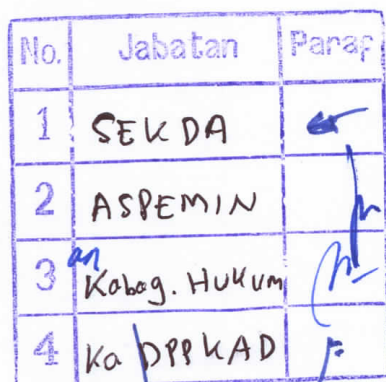 No. Jabatan Paraf
1 SEKDA
2 ASPEMIN
an
3 Kabag. HUKUM
4 Ka DPPKAD